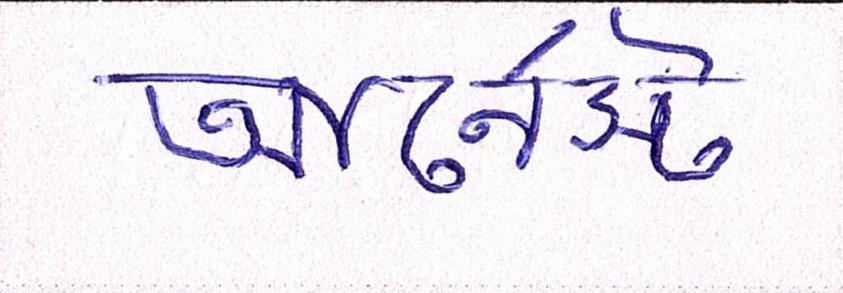 আর্নেস্ট